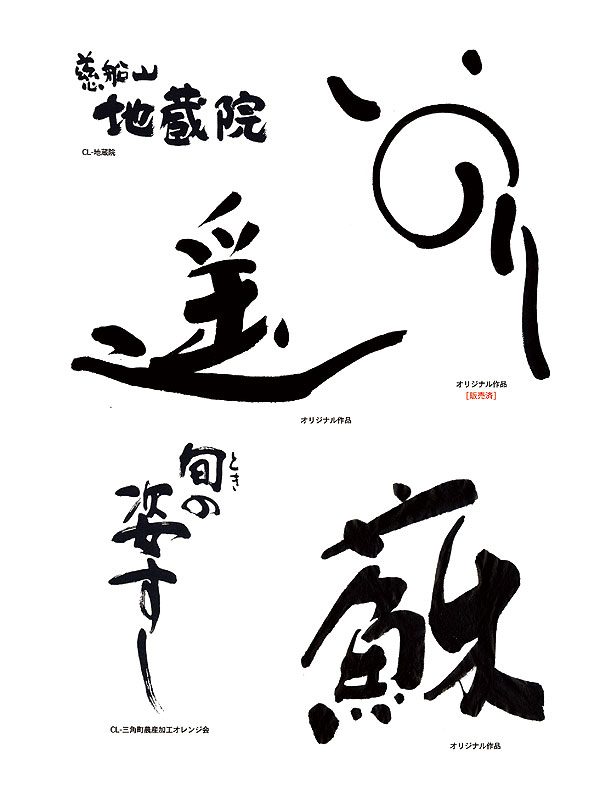 慈船山
地蔵院
CL-地蔵院
いのり
オリジナル作品
[販売済]
遥
オリジナル作品
旬の
とき
姿すし
CL-三角町農産加工オレンジ会
蘇
オリジナル作品